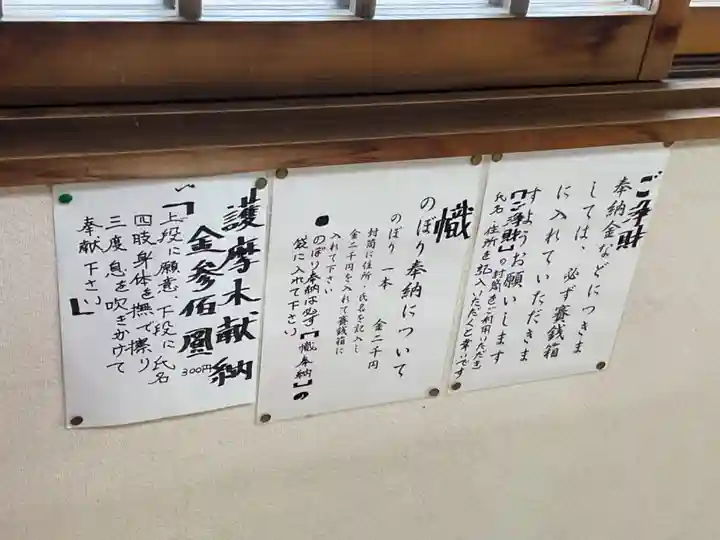 ご浄財
奉納金などにつきま
しては、必ず賽銭箱
に入れていただきま
すようお願いします
【ご浄財】の封筒をご利用いただき
氏名・住所を記入いただくと幸いです
幟
のぼり奉納について
のぼり 一本 金二千円
封筒に住所・氏名を記入し
金二千円を入れて賽銭箱に
入れて下さい
●のぼり奉納は必ず【幟奉納】の
袋に入れて下さい
護摩木献納
金参佰圓
300円
「上段に願意、下段に氏名
四肢身体を撫で擦り
三度息を吹きかけて
奉献下さい」